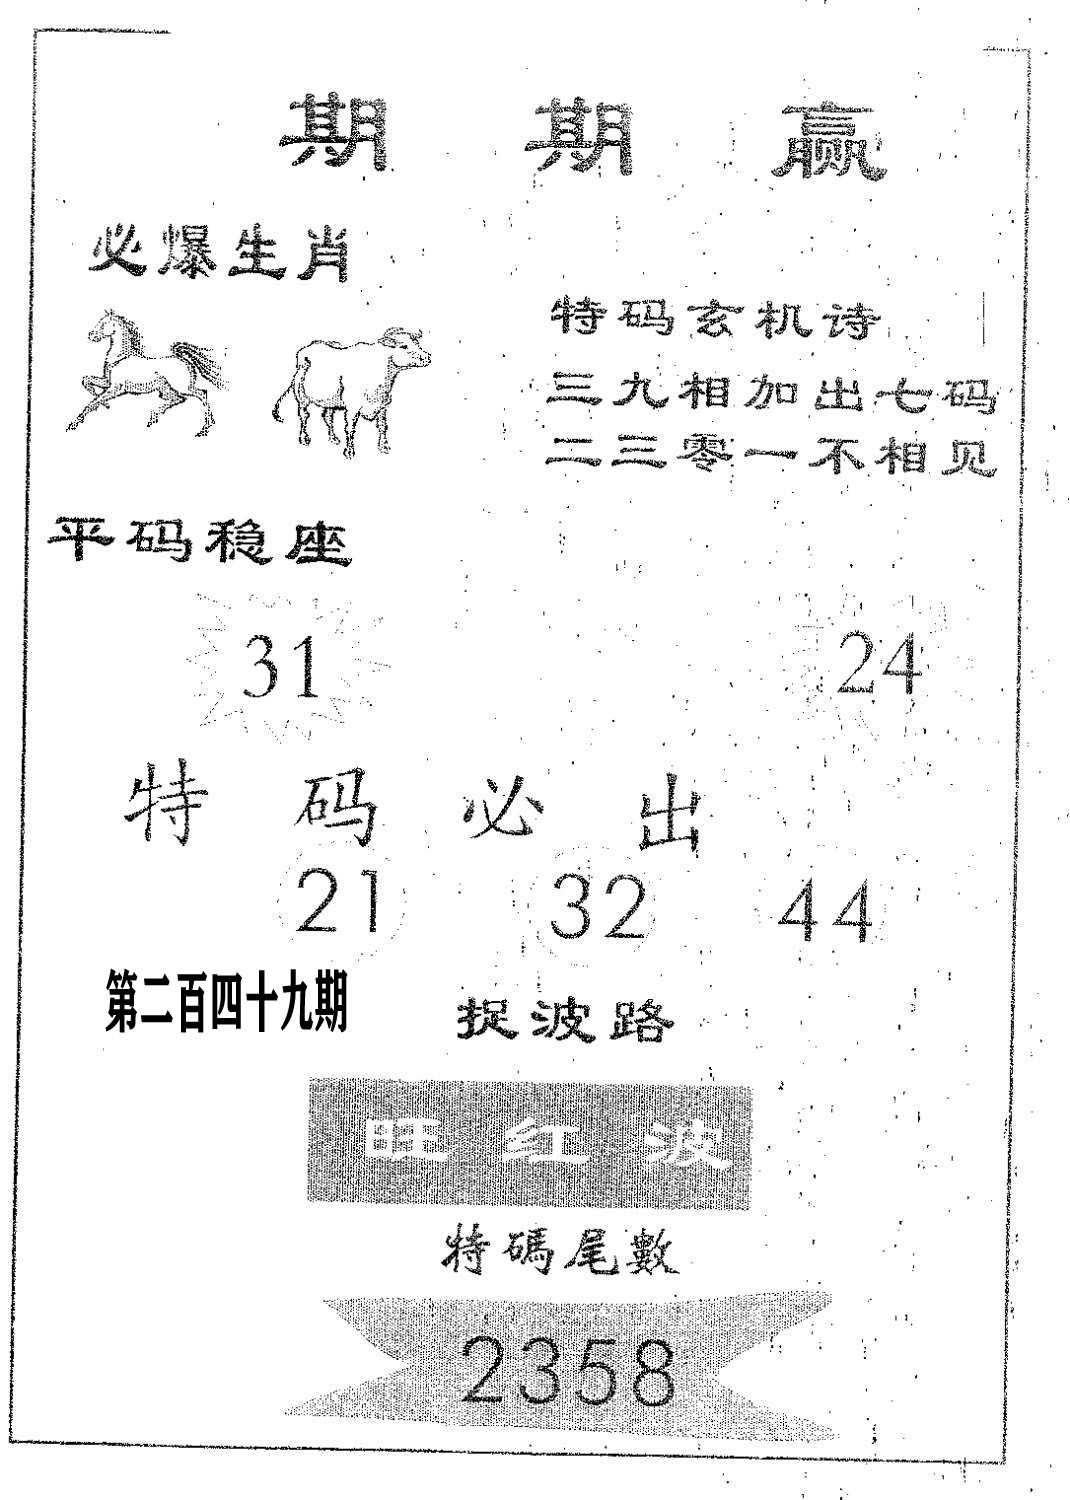 期期赢
必爆生肖
特码玄机诗
三九相加出七码
二三零一不相见
平码稳座
31
24
特码必出
21 32 44
第二百四十九期
捉波路
旺红波
特碼尾數
2358